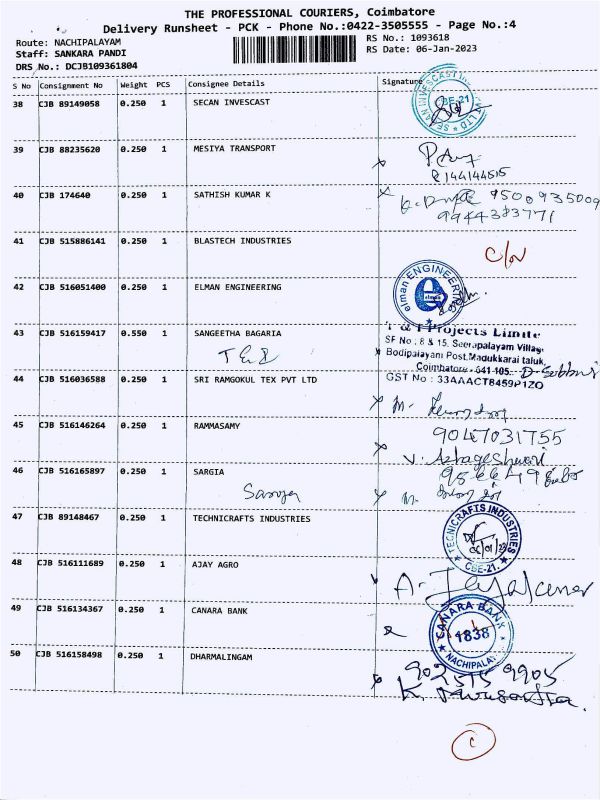 THE PROFESSIONAL COURIERS, Coimbatore
Delivery Runsheet - PCK - Phone No.:0422-3505555 - Page No.:4
Route: NACHIPALAYAM
RS No.: 1093618
Staff: SANKARA PANDI
RS Date: 06-Jan-2023
DRS No.: DCJB109361804
S No Consignment No Weight PCS Consignee Details Signature
38 CJB 89149058 0.250 1 SECAN INVESCAST
39 CJB 88235620 0.250 1 MESIYA TRANSPORT
40 CJB 174640 0.250 1 SATHISH KUMAR K
9500935009
9944383771
41 CJB 515886141 0.250 1 BLASTECH INDUSTRIES
42 CJB 516051400 0.250 1 ELMAN ENGINEERING
elman ENGINEERING
elman
43 CJB 516159417 0.550 1 SANGEETHA BAGARIA
T & I Projects Limite
SF No : 8 & 15, Seerapalayam Village
Bodipalayam Post, Madukkarai taluk,
Coimbatore - 641 105.
GST No : 33AAACT8459P1ZO
44 CJB 516036588 0.250 1 SRI RAMGOKUL TEX PVT LTD
45 CJB 516146264 0.250 1 RAMMASAMY
9047031755
46 CJB 516165897 0.250 1 SARGIA
47 CJB 89148467 0.250 1 TECHNICRAFTS INDUSTRIES
TECNICRAFTS INDUSTRIES
CBE-21.
48 CJB 516111689 0.250 1 AJAY AGRO
49 CJB 516134367 0.250 1 CANARA BANK
CANARA BANK
1838
NACHIPALAY
50 CJB 516158498 0.250 1 DHARMALINGAM